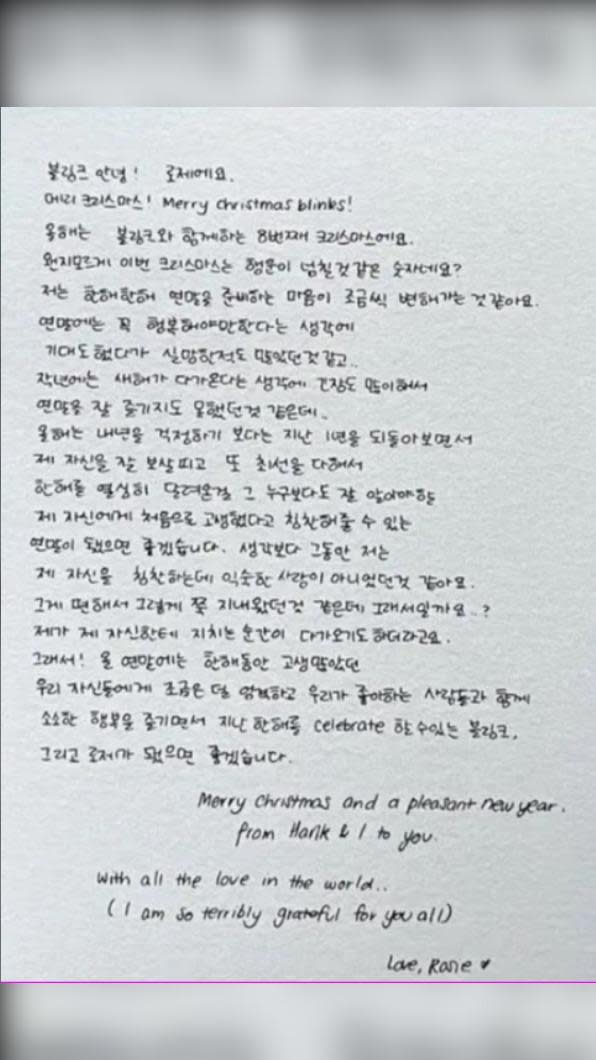 블링크 안녕! 로제에요.
메리 크리스마스! Merry Christmas blinks!
올해는 블링크와 함께하는 8번째 크리스마스에요.
왠지모르게 이번 크리스마스는 행운이 넘칠것같은 숫자네요?
저는 한해한해 연말을 준비하는 마음이 조금씩 변해가는 것 같아요.
연말에는 꼭 행복해야만한다는 생각에
기대도 했다가 실망한적도 많았던것 같고..
작년에는 새해가 다가온다는 생각에 긴장도 많이해서
연말을 잘 즐기지도 못했던것 같은데..
올해는 내년을 걱정하기 보다는 지난 1년을 되돌아보면서
제 자신을 잘 보살피고 또 최선을 다해서
한해를 열심히 달려온걸 그 누구보다도 잘 알아야할
제 자신에게 처음으로 고생했다고 칭찬해줄 수 있는
연말이 됐으면 좋겠습니다. 생각보다 그동안 저는
제 자신을 칭찬하는데 익숙한 사람이 아니었던것 같아요.
그게 편해서 그렇게 쭉 지내왔던것 같은데 그래서일까요..?
제가 제 자신한테 지치는 순간이 다가오기도 하더라고요.
그래서! 올 연말에는 한해동안 고생많았던
우리 자신들에게 조금은 덜 엄격하고 우리가 좋아하는 사람들과 함께
소소한 행복을 즐기면서 지난 한해를 celebrate 할 수있는 블링크,
그리고 로제가 됐으면 좋겠습니다.
Merry Christmas and a pleasant new year.
from Hank & I to you.
with all the love in the world..
(I am so terribly grateful for you all)
Love, Rosie ♥